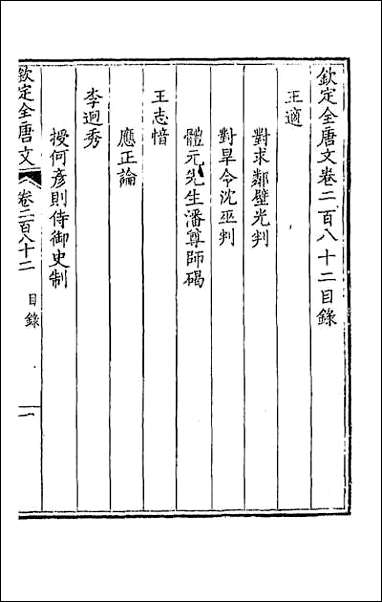 欽定全唐文卷二百八十二目錄
王適
對求鄰壁光判
對旱令沈巫判
體元先生潘尊師碣
王志愔
應正論
李迥秀
授何彥則侍御史制
欽定全唐文 卷二百八十二 目錄 一